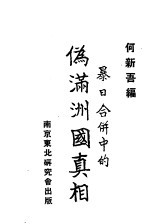 何新吾編
暴日合併中的
偽滿洲國真相
南京東北研究會出版